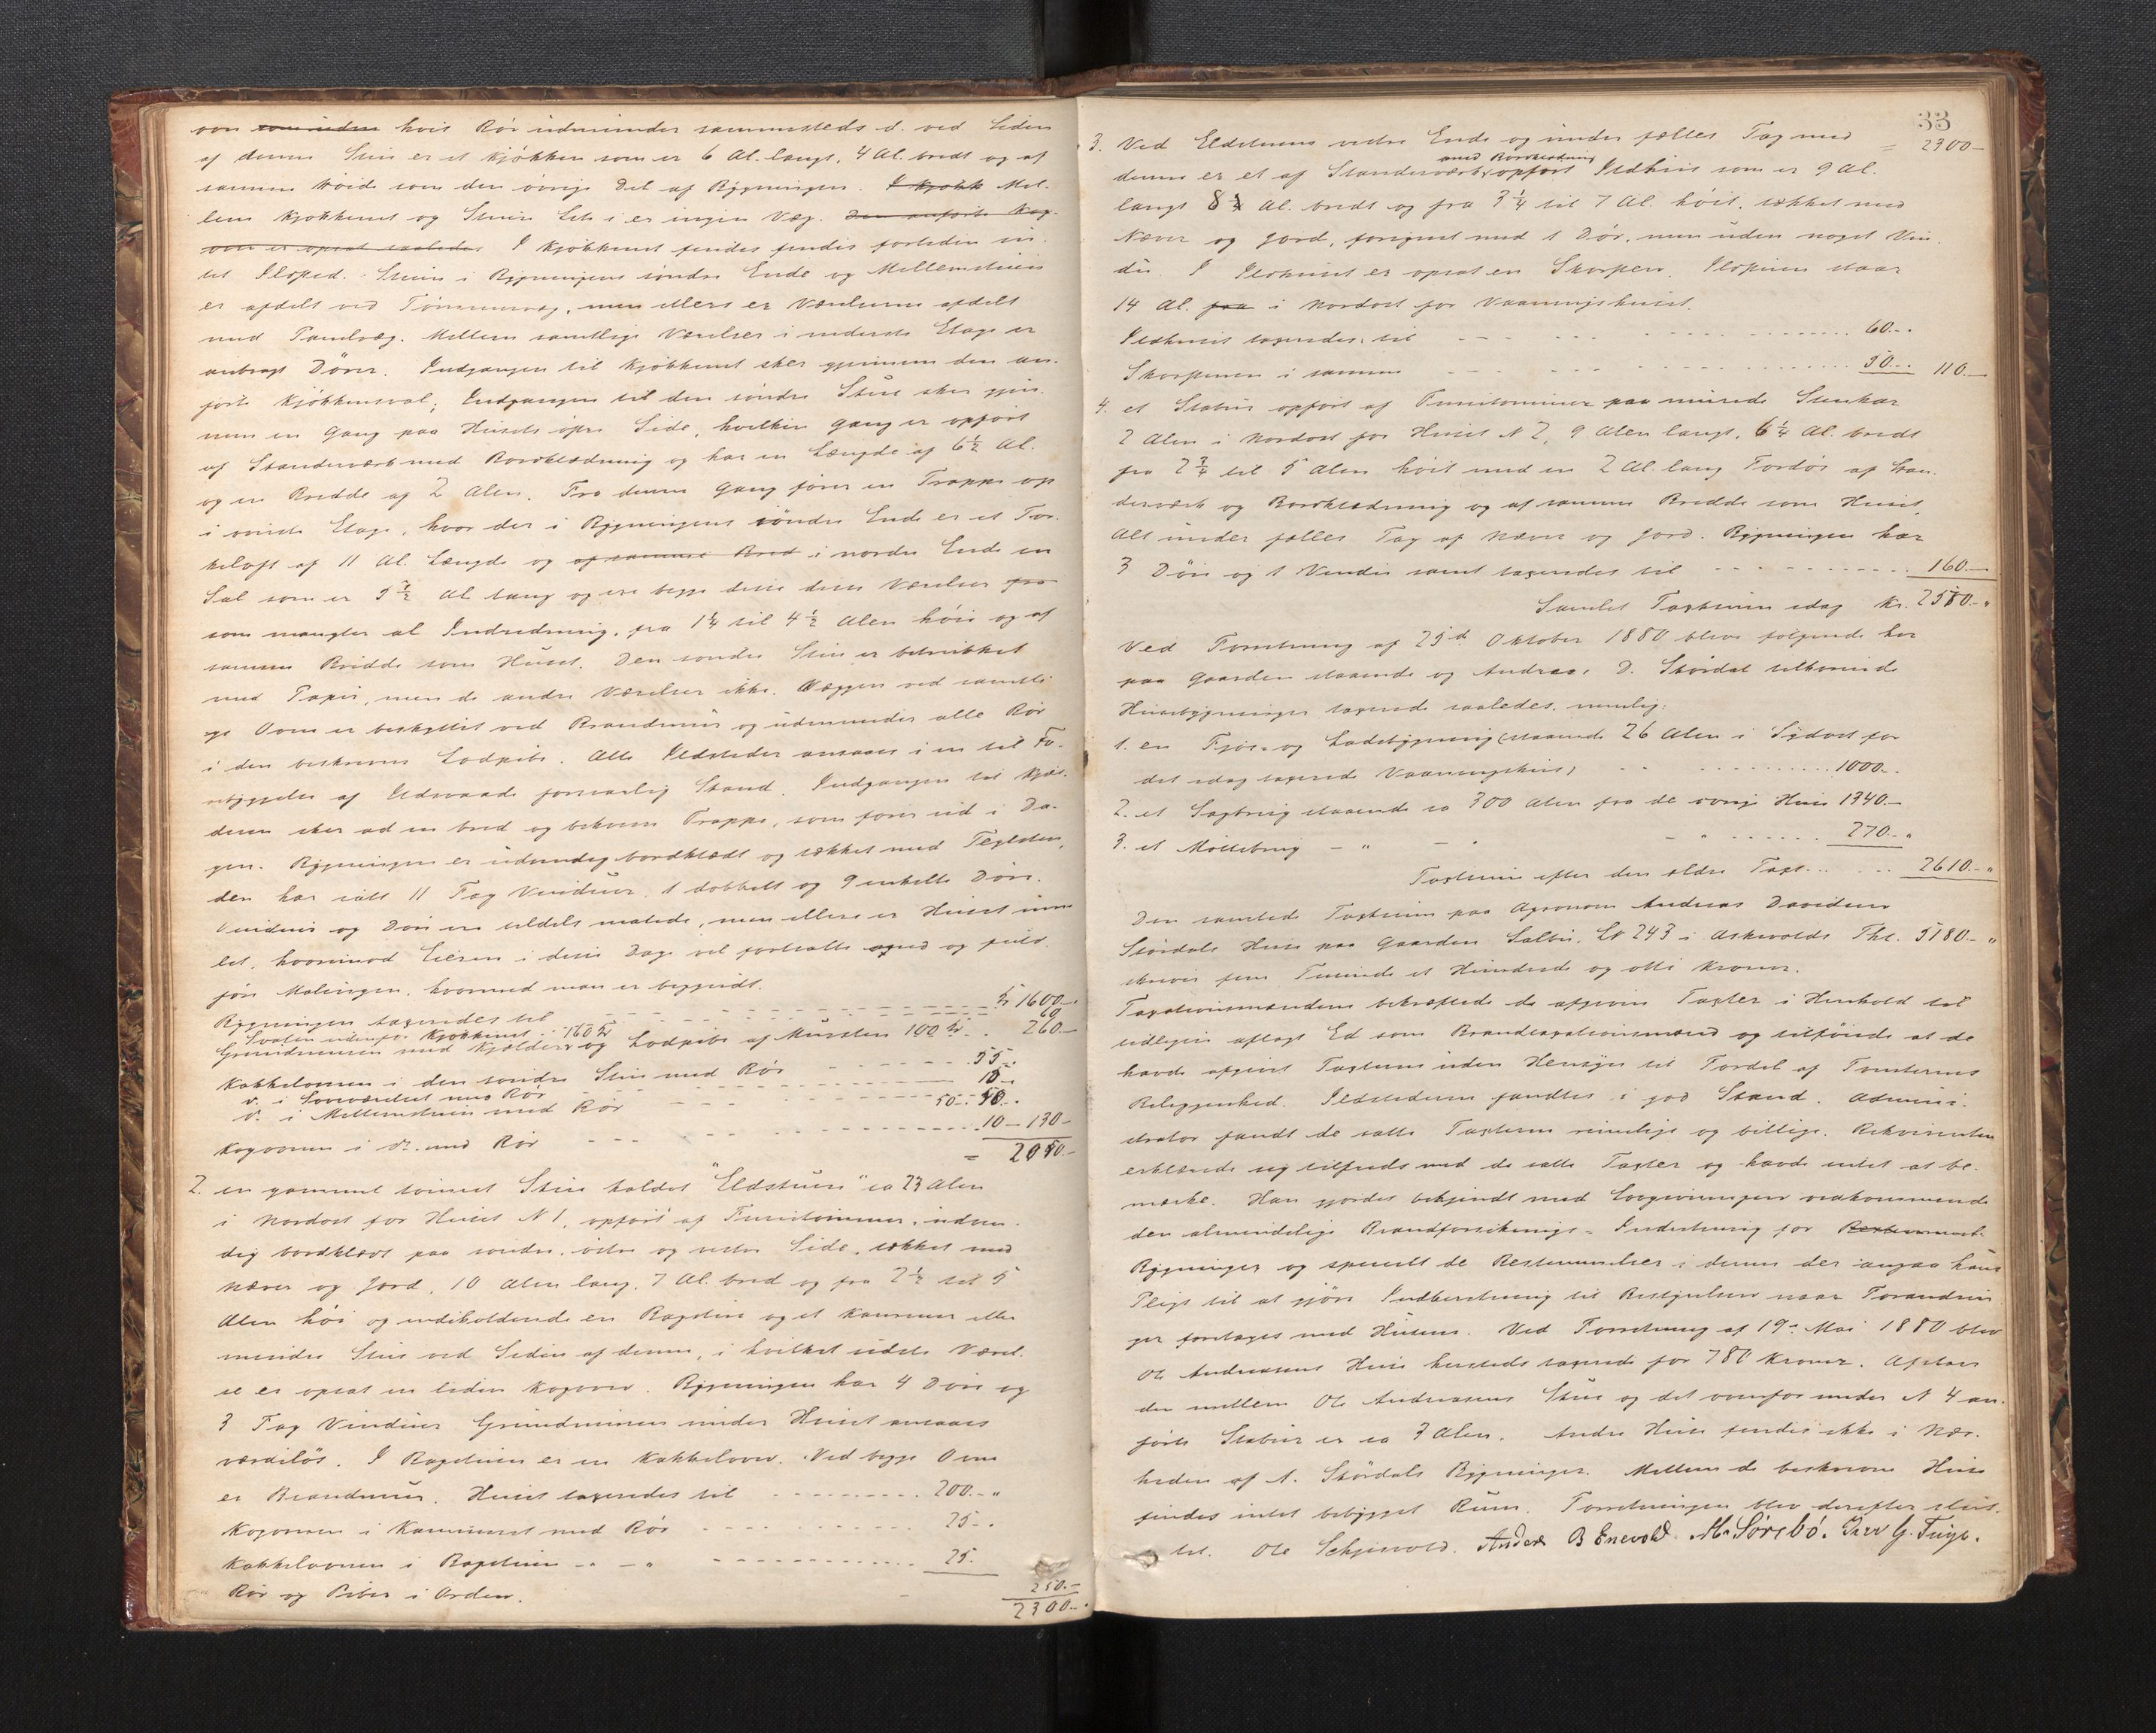 ovn som uden hvis Rör udmunder sammesteds d. ved Siden
af denne Stue er et Kjökken som er 6 Al. langt, 4 Al. bredt og af
samme Höide som den övrige Del af Bygningen. I Kjökk Mel-
lem Kjökkenet og Stuen Sets i er ingen Væg. Den anförte Kog-
ovn er opsat saaledes I Kjökkenet findes findes forteden in-
tet Ildsted. Stuen i Bygningens söndre Ende og Mellemstuen
er afdelt ved Tömmervæg, men ellers er Værelserne afdelt
med Panelvæg. Mellem samtlige Værelser i nederste Etage er
anbragt Dörer. Indgangen til Kjökkenet sker gjennem den an-
förte Kjökkensval; Indgangen til den söndre Stue sker gjen-
nem en Gang paa Husets öpre Side, hvilken Gang er opfört
af Standerværk med Bordklædning og har en Længde af 6½ Al.
og en Bredde af 2 Alen. Fra denne Gang förer en Trappe op
i överste Etage, hvor der i Bygningens söndre Ende er et Tör-
keloft af 11 Al. Længde og af samme Bred i nordre Ende en
Sal som er 5½ Al lang og ere begge disse dese Værelser fra
som mangler al Indredning, fra 1¼ til 4½ Alen höie og af
samme Bredde som Huset. Den söndre Stue er betrukket
med Papir, men de andre Værelser ikke. Væggen ved samtli-
ge Ovne er beskyttet ved Brandmur og udmunder alle Rör
i den beskrevne Lodpibe. Alle Ildsteder ansaaes i en til Fo-
rebyggelse af Ildsvaade forsvarlig Stand. Indgangen til Kjæl-
deren sker ad en bred og bekvem Trappe, som förer ud i Da-
gen. Bygningen er udvendig bordklædt og tækket med Teglsten,
den har ialt 11 Fag Vinduer, 1 dobbelt og 9 enkelte Döre.
Vinduer og Döre ere tildels malede, men ellers er Huset uma-
let, hvorimod Eieren i disse Dage vil fortsætte med og fuld-
före Malingen, hvormed man er begyndt.
Bygningen taxeredes til - - - kr 1600.-
Svalen udenfor Kjökkenet - - - 60
Grundmuren med Kjælder 160 kr og Lodpibe af Mursten 100 kr. . 260.-
Kakkelovnen i den söndre Stue med Rör - - - 55.-
d. i Soveværelset med Rör - - - 15.-
d. i Mellemstuen med Rör - - - 50.-
Kogovnen i do med Rör - - - 10 - 130-
= 2050.-
2. en gammel tömret Stue kaldet "Eldstuen" ca 23 Alen
i Nordost for Huset N 1, opfört af Furutömmer, udven-
dig bordklædt paa söndre, östre og vestre Side, tækket med
Næver og Jord, 10 Alen lang, 7 Al. bred og fra 2½ til 5
Alen höi og indeholdende en Bagstue og et Kammer eller
mindre Stue ved Siden af denne, i hvilket sidste Værel-
se er opsat en liden Kogovn. Bygningen har 4 Döre og
3 Fag Vinduer Grundmuren under Huset ansaaes
værdilös. I Bagstuen er en Kakkelovn. Ved begge Ovne
er Brandmur. Huset taxeredes til - - - 200.- "
Kogovnen i Kammeret med Rör - - - 25-.
Kakkelovnen i Bagstuen -"- -" - - - 25.
Rör og Piber i Orden. 250.-
2300.-
33
3. Ved Eldstuens vestre Ende og under fælles Tag med = 2300-
denne er et af Standerværk med Bordklædning opfört Ildhus som er 9 Al.
langt 8¼ Al. bredt og fra 3¼ til 7 Al. höit, tækket med
Næver og Jord, forsynet med 1 Dör, men uden noget Vin-
du. I Ildhuset er opsat en Skorsten. Ildhuset staar
14 Al. fra i Nordost for Vaaningshuset.
Ildhuset taxeredes til - - - 60.-.
Skorstenen i samme - - - 50.-. 110.-
4. et Stabur opfört af Furutömmer paa murede Stenkar
2 Alen i Nordost for Huset N 2, 9 Alen langt, 6¼ Al. bredt
fra 2¾ til 5 Alen höit med en 2 Al. lang Fordör af Stan-
derværk og Bordklædning og af samme Bredde som Huset,
Alt under fælles Tag af Næver og Jord. Bygningen har
3 Döre og 1 Vindu samt taxeredes til - - - 160.-
Samlet Taxtsum idag kr. 2570.- "
Ved Forretning af 25de Oktober 1880 bleve fölgende her
paa Gaarden staaende og Andreas D. Stördal tilhörende
Husebygninger taxerede saaledes, nemlig:
1. en Fjös- og Ladebygning (staaende 26 Alen i Sydost for
det idag taxerede Vaaningshus) - - - 1000.-.
2. et Sagbrug staaende ca 300 Alen fra de övrige Huse 1340.-
3. et Möllebrug - " - " - " - - - 270.- "
Taxtsum efter den ældre Taxt. . . . 2610.- "
Den samlede Taxtsum paa Agronom Andreas Davidsen
Stördals Huse paa Gaarden Salbu, LN 243 i Askvolds Thl. 5180.- "
skriver fem Tusinde et Hundrede og otti Kroner.
Taxationsmændene bekræftede de afgivne Taxter i Henhold til
tidligere aflagt Ed som Brandtaxationsmænd og tilföiede at de
havde afgivet Taxterne uden Hensyn til Fordel af Tomternes
Beliggenhed. Ildstederne fandtes i god Stand. Admini-
strator fandt de satte Taxterne rimelige og billige. Rekvirenten
erklærede sig tilfreds med de satte Taxter og havde intet at be-
mærke. Han gjordes bekjendt med Lovgivningen vedkommende
den almindelige Brandforsikrings-Indretning for Bestemmel-
Bygninger og specielt de Bestemmelser i denne der angaa hans
Pligt til at gjöre Indberetning til Bestyrelsen naar Forandrin-
ger foretages med Husene. Ved Forretning af 19de Mai 1880 blev
Ole Andreasens Huse hersteds taxerede for 780 Kroner. Afstan-
den mellem Ole Andreasens Stue og det ovenfor under N 4 an-
förte Stabur er ca 3 Alen. Andre Huse findes ikke i Nær-
heden af A. Stördals Bygninger. Mellem de beskrevne Huse
findes intet bebygget Rum. Forretningen blev derefter slut-
tet. Ole Schjervold. Anders B Enevold. M. Sörebö. Iver G.